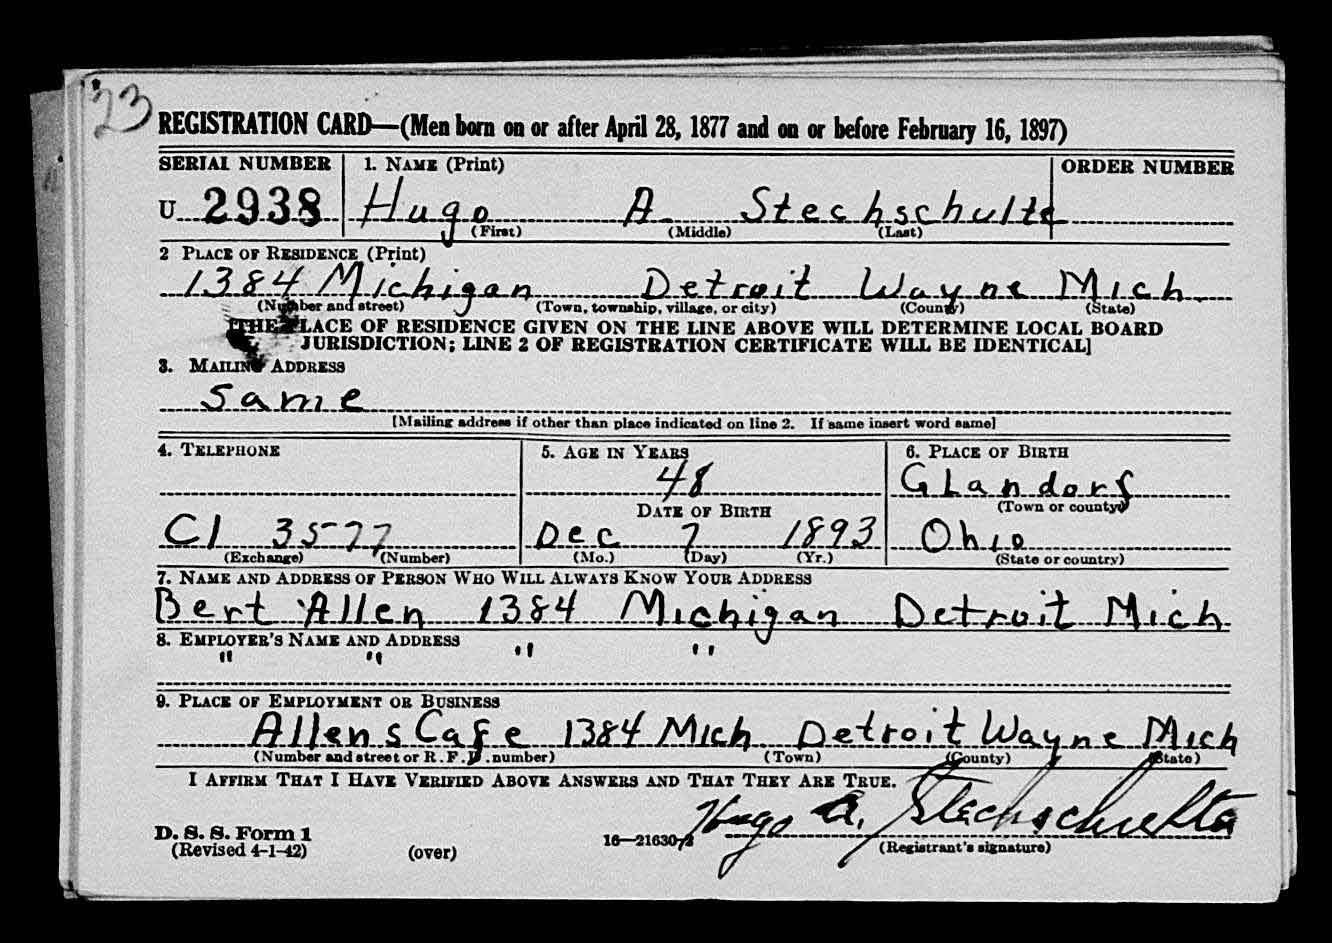 23
REGISTRATION CARD—(Men born on or after April 28, 1877 and on or before February 16, 1897)
SERIAL NUMBER 1. NAME (Print) ORDER NUMBER
U 2938 Hugo A. Stechschulte
(First) (Middle) (Last)
2 PLACE OF RESIDENCE (Print)
1384 Michigan Detroit Wayne Mich.
(Number and street) (Town, township, village, or city) (County) (State)
[THE PLACE OF RESIDENCE GIVEN ON THE LINE ABOVE WILL DETERMINE LOCAL BOARD
JURISDICTION; LINE 2 OF REGISTRATION CERTIFICATE WILL BE IDENTICAL]
3. MAILING ADDRESS
Same
[Mailing address if other than place indicated on line 2. If same insert word same]
4. TELEPHONE 5. AGE IN YEARS 6. PLACE OF BIRTH
48 Glandorf
DATE OF BIRTH (Town or county)
CI 3577 Dec 7 1893 Ohio
(Exchange) (Number) (Mo.) (Day) (Yr.) (State or country)
7. NAME AND ADDRESS OF PERSON WHO WILL ALWAYS KNOW YOUR ADDRESS
Bert Allen 1384 Michigan Detroit Mich.
8. EMPLOYER'S NAME AND ADDRESS
" " " "
9. PLACE OF EMPLOYMENT OR BUSINESS
Allens Cafe 1384 Mich Detroit Wayne Mich
(Number and street or R. F. D. number) (Town) (County) (State)
I AFFIRM THAT I HAVE VERIFIED ABOVE ANSWERS AND THAT THEY ARE TRUE.
Hugo A. Stechschulte
D. S. S. Form 1
(Revised 4-1-42) (over) 16—21630-2 (Registrant's signature)